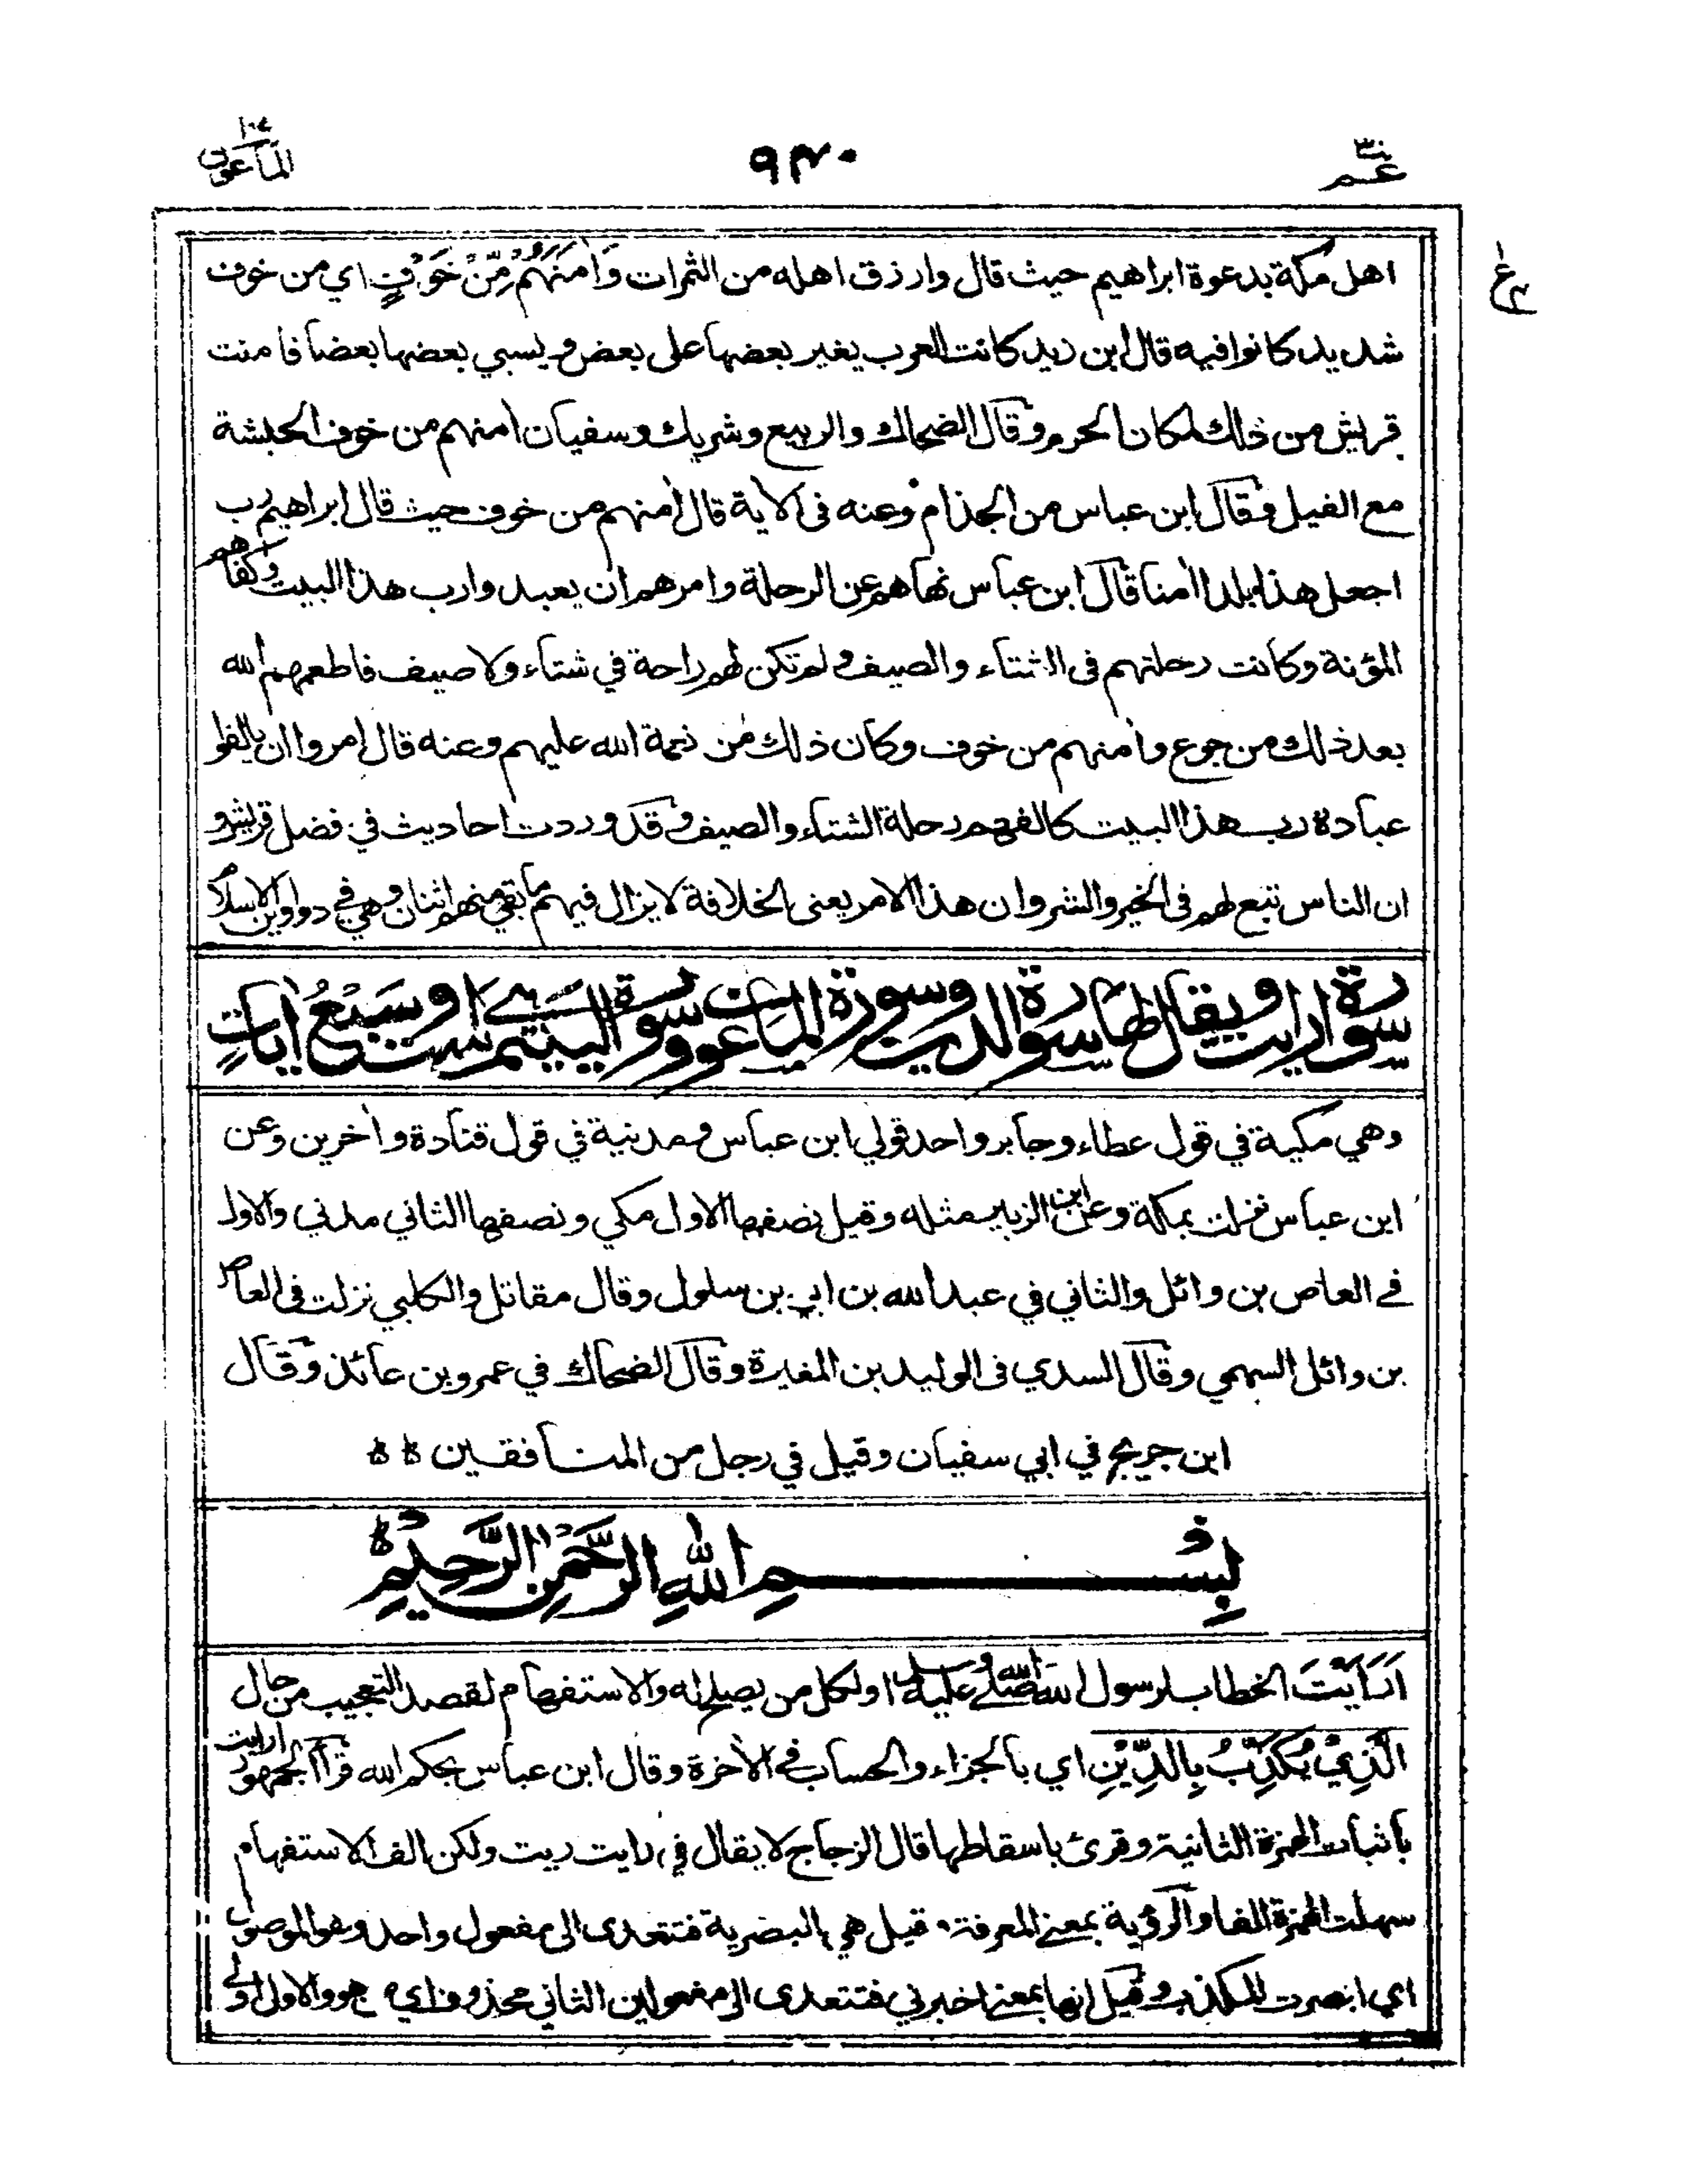 عم ٣٠
٩٣٠
الماعون ١٠٧
ع
اهل مكة بدعوة ابراهيم حيث قال وارزق اهله من الثمرات وَاٰمَنَهُمْ مِّنْ خَوْفٍ اي من خوف
شديد كانوا فيه قال ابن زيد كانت العرب يغير بعضها على بعض ويسبي بعضها بعضا فامنت
قريش من ذلك لمكان الحرم وقال الضحاك والربيع وشريك وسفيان اٰمنهم من خوف الحبشة
مع الفيل وقال ابن عباس من الجذام وعنه فى الاٰية قال اٰمنهم من خوف حيث قال ابراهيم رب
اجعل هذا بلدا اٰمنا قال ابن عباس نهاهم عن الرحلة وامرهم ان يعبدوا رب هذا البيت وكفاهم
المؤنة وكانت رحلتهم فى الشتاء والصيف ولم تكن لهم راحة في شتاء ولا صيف فاطعمهم الله
بعد ذلك من جوع واٰمنهم من خوف وكان ذلك من نعمة الله عليهم وعنه قال امروا ان يالفوا
عبادة رب هذا البيت كالفهم رحلة الشتاء والصيف وقد وردت احاديث في فضل قريش و
ان الناس تبع لهم فى الخير والشر وان هذا الامر يعنى الخلافة لا يزال فيهم ما بقي منهم اثنان وهي في دواوين الاسلام
سورة ارايت ويقال لها سورة الدين وسورة الماعون وسورة اليتيم هي ست او سَبْعُ اٰيَاتٍ
وهي مكية في قول عطاء وجابر واحد قولي ابن عباس ومدنية في قول قتادة واٰخرين وعن
ابن عباس نزلت بمكة وعن ابن الزبير مثله وقيل نصفها الاول مكي ونصفها الثاني مدني والاول
في العاص بن وائل والثاني في عبد الله بن ابي بن سلول وقال مقاتل والكلبي نزلت فى العاص
بن وائل السهمي وقال السدي فى الوليد بن المغيرة وقال الضحاك في عمرو بن عائذ وقال
ابن جريج في ابي سفيان وقيل في رجل من المنافقين
بِسْمِ اللّٰهِ الرَّحْمٰنِ الرَّحِيْمِ
اَرَاَيْتَ الخطاب لرسول الله صلى الله عليه وسلم او لكل من يصلح له والاستفهام لقصد التعجيب من حال
الَّذِيْ يُكَذِّبُ بِالدِّيْنِ اي بالجزاء والحساب في الاٰخرة وقال ابن عباس بحكم الله قرأ الجمهور ارايت
باثبات الهمزة الثانية وقرئ باسقاطها قال الزجاج لا يقال في رايت ريت ولكن الف الاستفهام
سهلت الهمزة الفا والرؤية بمعنى المعرفة قيل هي البصرية فتتعدى الى مفعول واحد وهو الموصول
اي ابصرت المكذب وقيل انها بمعنى اخبرني فتتعدى الى مفعولين الثاني محذوف اي من هو والاول اولى